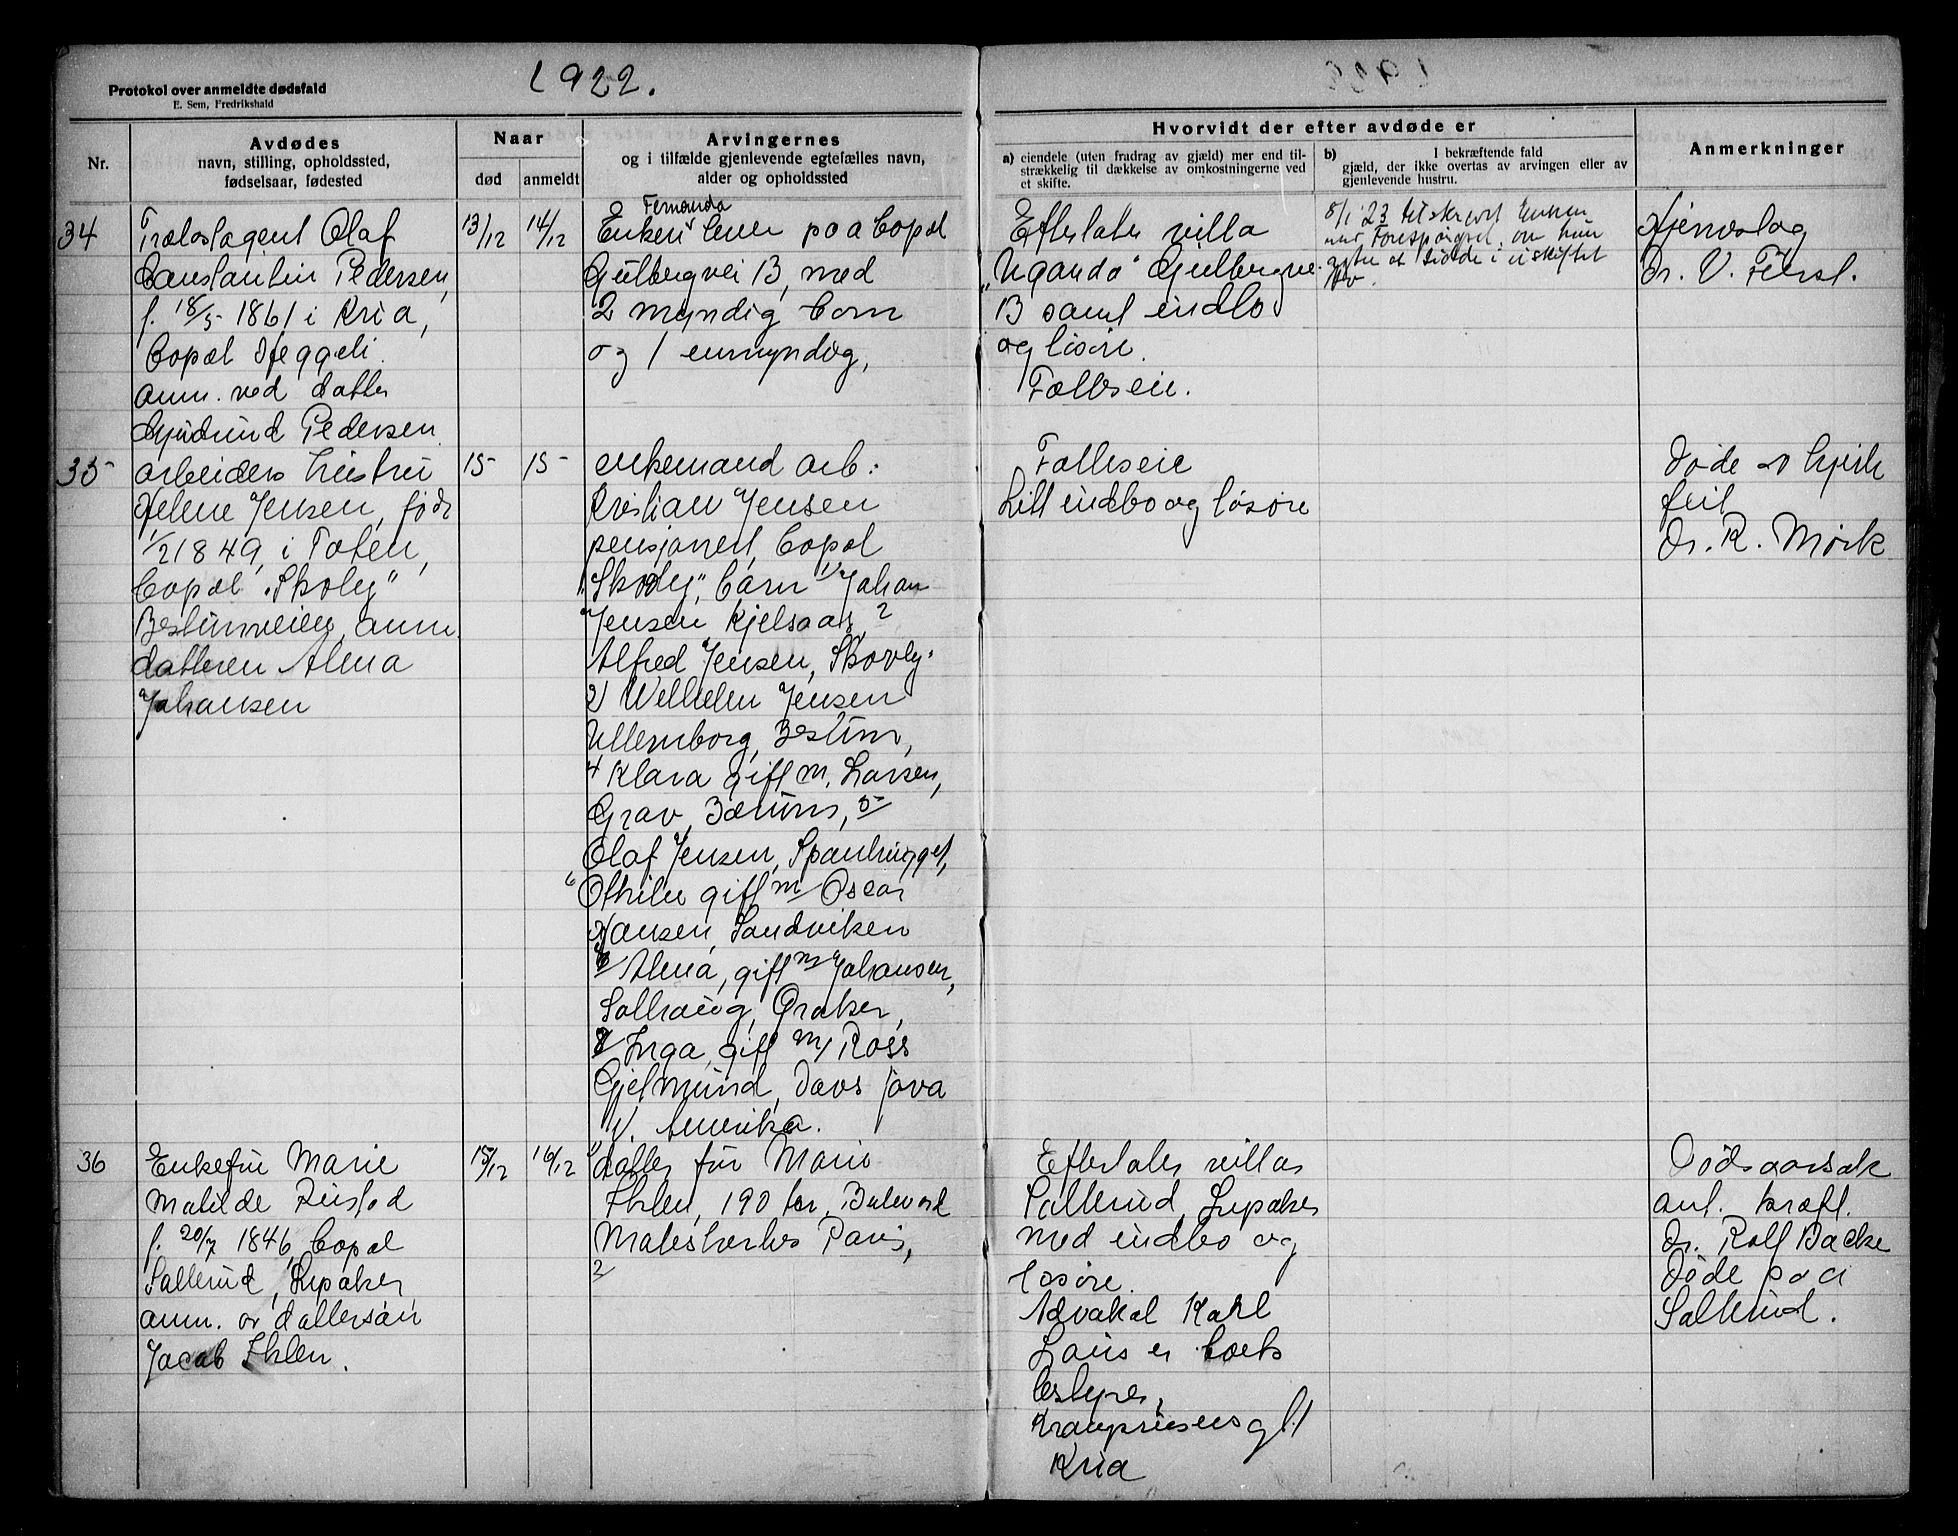 1922.
Protokol over anmeldte dødsfald
E. Sem, Fredrikshald
Nr.
Avdødes
navn, stilling, opholdssted,
fødselsaar, fødested
Naar
død
anmeldt
Arvingernes
og i tilfælde gjenlevende egtefælles navn,
alder og opholdssted
Hvorvidt der efter avdøde er
a) eiendele (uten fradrag av gjæld) mer end til-
strækkelig til dækkelse av omkostningerne ved
et skifte.
b) I bekræftende fald
gjæld, der ikke overtas av arvingen eller av
gjenlevende hustru.
Anmerkninger
34
Trælastagent Olaf
Constantin Pedersen,
f. 18/5 1861 i Kria,
bopæl Jeggeli
anm. ved datter
Pedersen
13/12
14/12
Fernanda
Enken lever paa bopæl
Gulbergvei 13, med
2 myndig born
og 1 enmyndig,
Efterlater villa
"Uganda" Gulbergvei
13 samt indbo
og løsøre.
Fælleseie.
8/1 '23 tilskrevet Enken
med Forespørgsel om hun
at sidde i uskiftet
bo.
Hjerneslag
Dr. V. Fürst.
35
arbeiders hustru
Helene Jensen, født
1/2 1849, i Toten,
bopæl "Skoly"
Bestumveien, anm.
datteren Alma
Johansen
15
15
enkemand arb:
Kristian Jensen
pensjonert, bopæl
"Skoly", børn 1) Johan
Jensen Kjelsaas, 2
Alfred Jensen, Skovly.
3) Wilhelm Jensen
Ullernborg, Bestum,
4 Klara gift m. Larsen,
Grav, Bærum, 5
Olaf Jensen, Spanhugget,
6 Othilie gift m Oscar
Hansen, Sandviken
7 Alma, gift m Johansen,
Solhaug, Øraker,
8 Inga, gift m/ Ross
Gjelmund, Davs Java
N. Amerika.
Fælleseie
Litt indbo og løsøre
Døde av hjerte
feil
Dr. R. Mørk
36
Enkefru Marie
Matilde Rustad
f. 20/7 1846, bopæl
Sollerud, Lysaker,
anm. av dattersøn
Jacob Ihlen.
15/12
16/12
1) datter fru Marie
Ihlen, 190 ter, Bulevard
Malesherbes Paris,
2
Efterlater villa
Sollerud, Lysaker
med indbo og
løsøre.
Advokat Karl
Lous er boets
bestyrer,
Kronprinsensgt. 1
Kria
Dødsaarsak
ant. kræft.
Dr. Rolf Backe
Døde paa
Sollerud.